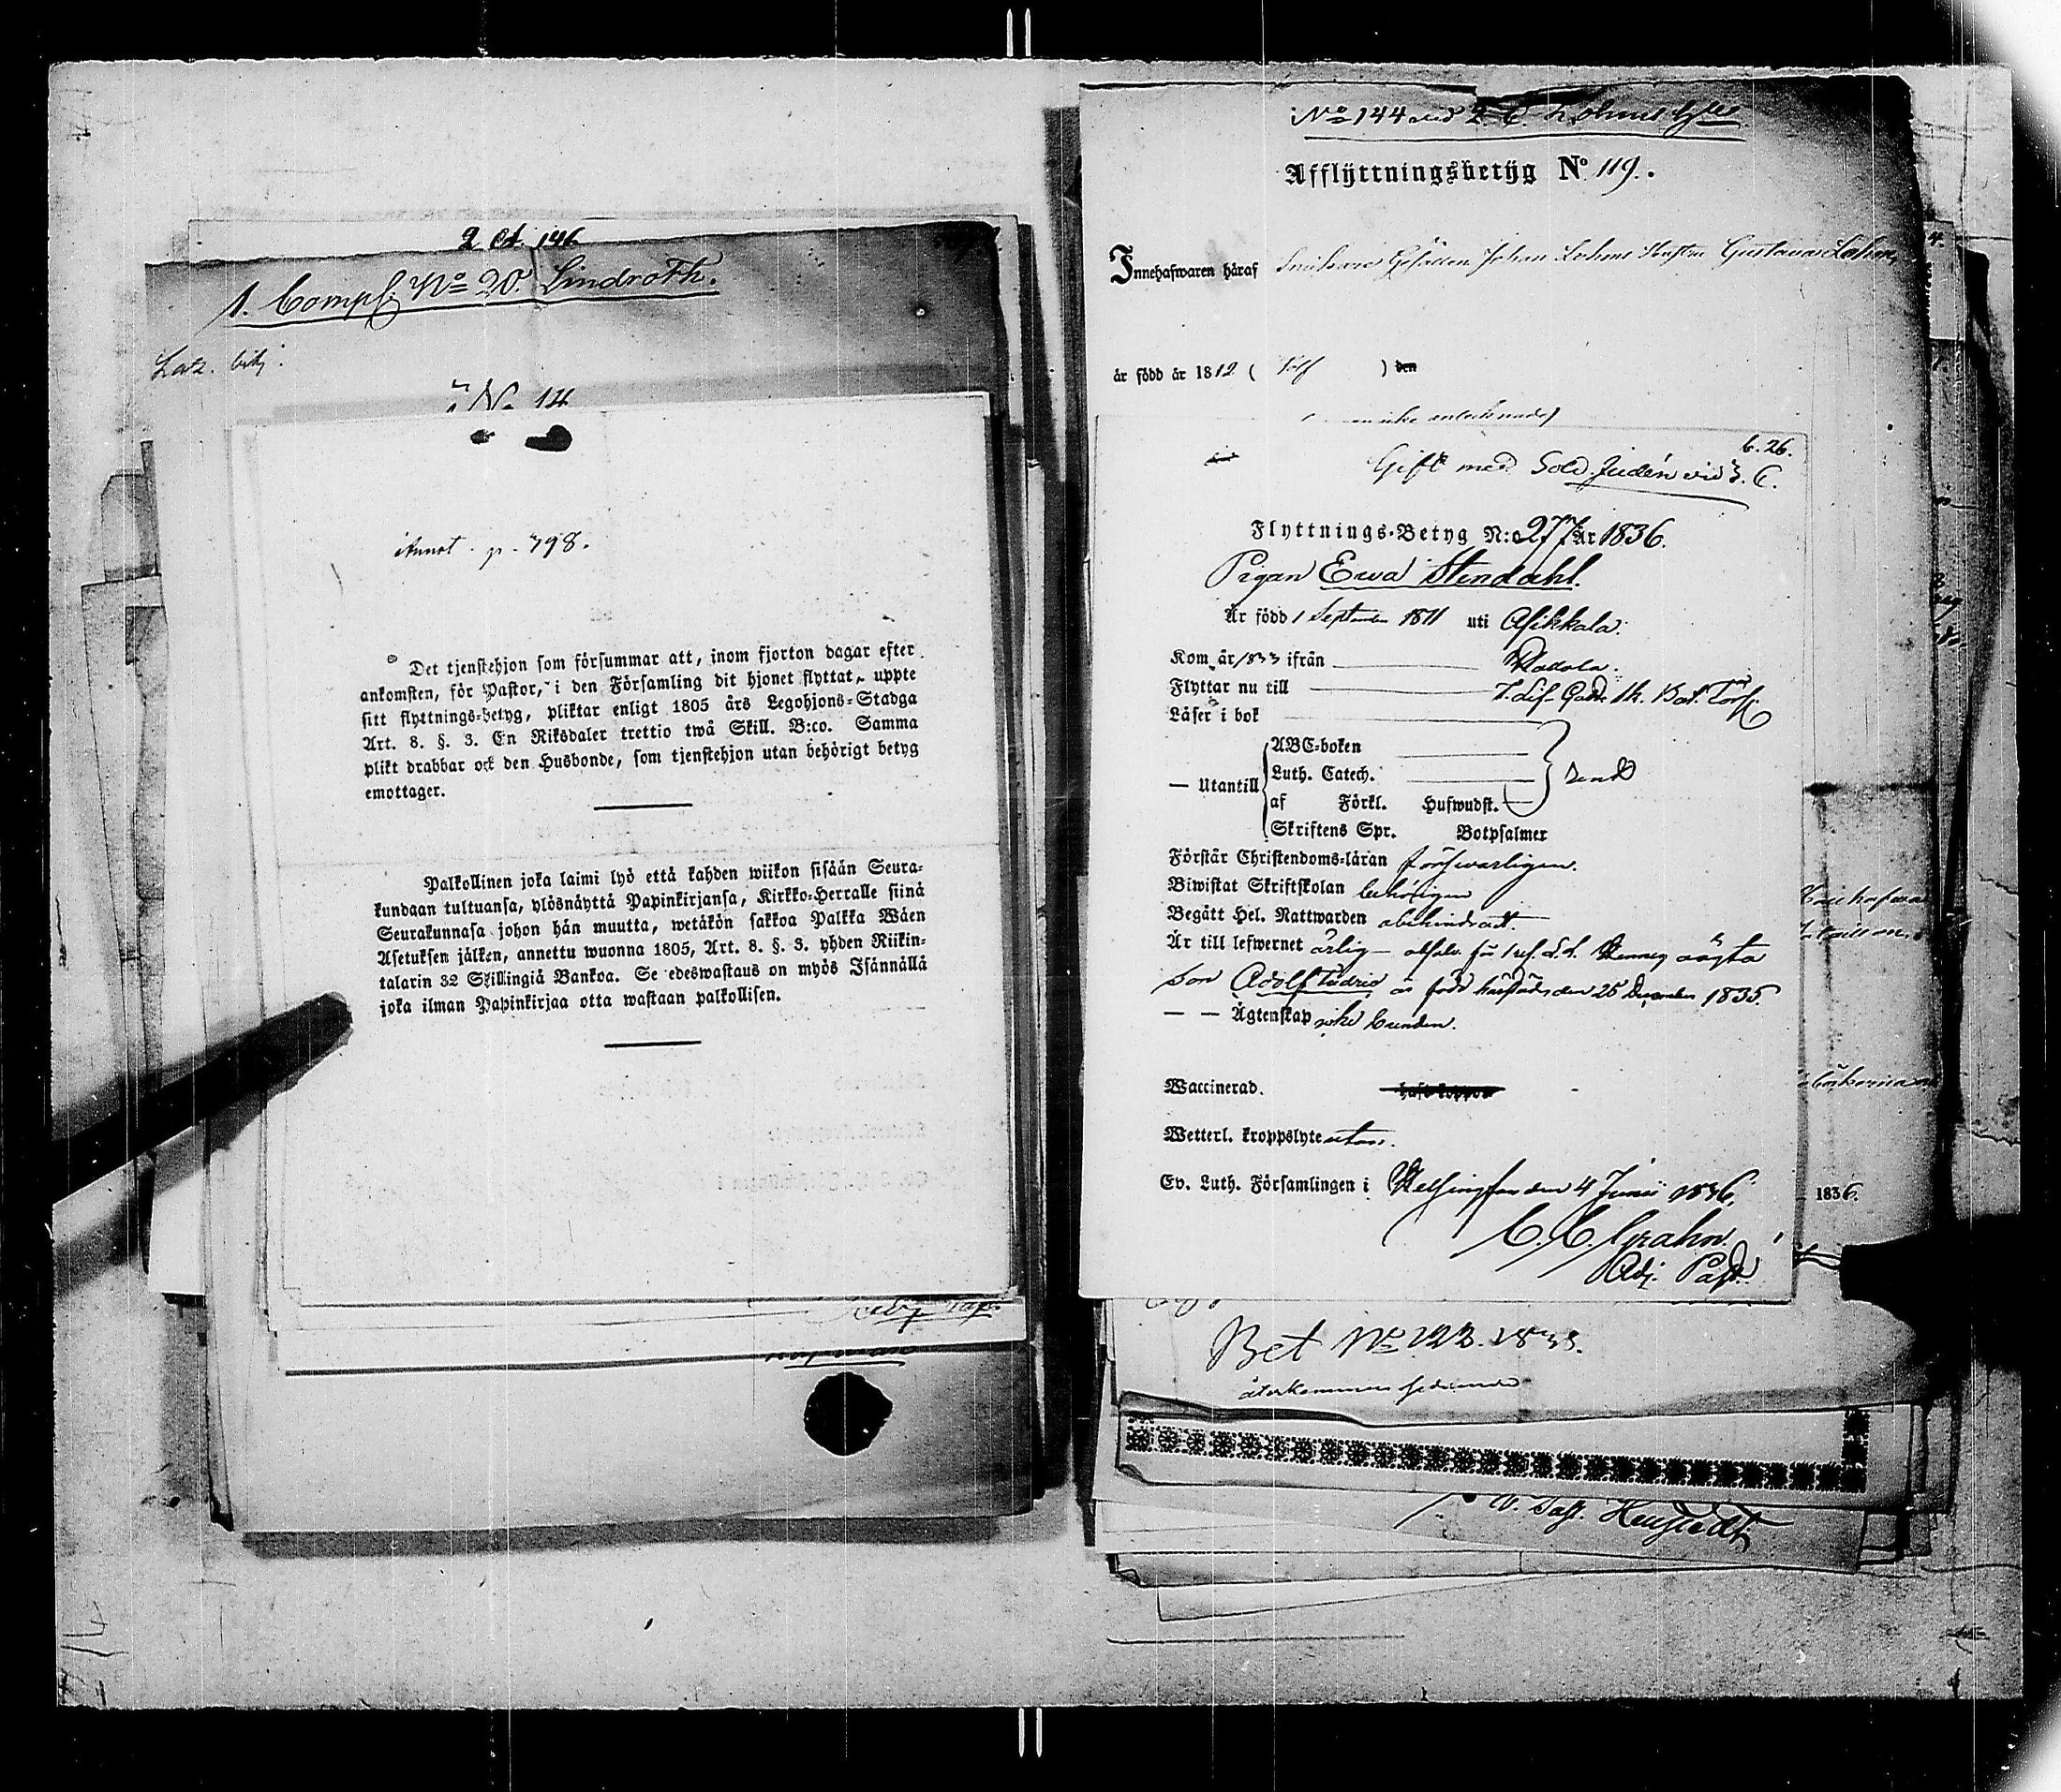 2 Ct. 146
1. Comp. No 20. Lindroth.
No 14
Annot. p. 798.
Det tjenstehjon som försummar att, inom fjorton dagar efter
ankomsten, för Pastor, i den Församling dit hjonet flyttat, uppte
sitt flyttnings-betyg, pliktar enligt 1805 års Legohjons-Stadga
Art. 8. §. 3. En Riksdaler trettio twå Skill. B:co. Samma
plikt drabbar ock den Husbonde, som tjenstehjon utan behörigt betyg
emottager.
Palkollinen joka laimi lyö että kahden wiikon sisään Seura-
kundaan tultuansa, ylösnäyttä Papinkirjansa, Kirkko-Herralle siinä
Seurakunnasa johon hän muutta, wetäkön sakkoa Palkka Wäen
Asetuksen jälken, annettu wuonna 1805, Art. 8. §. 3. yhden Riikin-
talarin 32 Skillingiä Bankoa. Se edeswastaus on myös Isännällä
joka ilman Papinkirjaa otta wastaan palkollisen.
No 144 med 2. C.
Afflyttningsbetyg No 119.
Innehafwaren häraf Gesällen Johan Hustru Gustava
är född år 1812 ( Tolf ) den
icke antecknade)
6. 26.
Gift med Sold. Judén vid 3. C.
Flyttnings-Betyg N:o 277 År 1836.
Pigan Ewa Stendahl.
Är född 1 September 1811 uti Asikkala.
Kom år 1833 ifrån Nadola.
Flyttar nu till Bat. Förs.
Läser i bok
— Utantill
ABC-boken
Luth. Catech.
af Förkl. Huswudst.
Skriftens Spr. Botpsalmer
Förstår Christendoms-läran försvarligen.
Biwistat Skriftskolan behörigen
Begått Hel. Nattwarden obehindradt.
Är till lefwernet ärlig oägta
son Adolf Fredric är född härstädes den 25 December 1835.
— — Ägtenskap icke bunden.
Waccinerad. haft koppor
Wetterl. kroppslyte utan.
Ev. Luth. Församlingen i Helsingfors den 4 Junii 1836.
C. C. Grahn.
Adj. Past.
1836.
Bet No 122. 1833.
återkommen
V. Past.